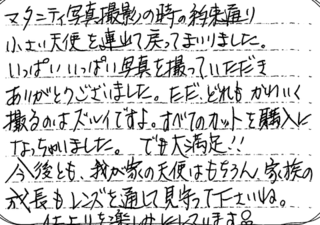 マタニティ写真撮影の時の約束通り
小さい天使を連れて戻ってまいりました。
いっぱい いっぱい写真を撮っていただき
ありがとうございました。ただ、どれも かわいく
撮るのはズルイですよ。すべてのカットを購入に
なっちゃいました。 でも大満足!!
今後とも、我が家の天使はもちろん、家族の
成長もレンズを通して見守って下さいね。
仕上りを楽しみにしています